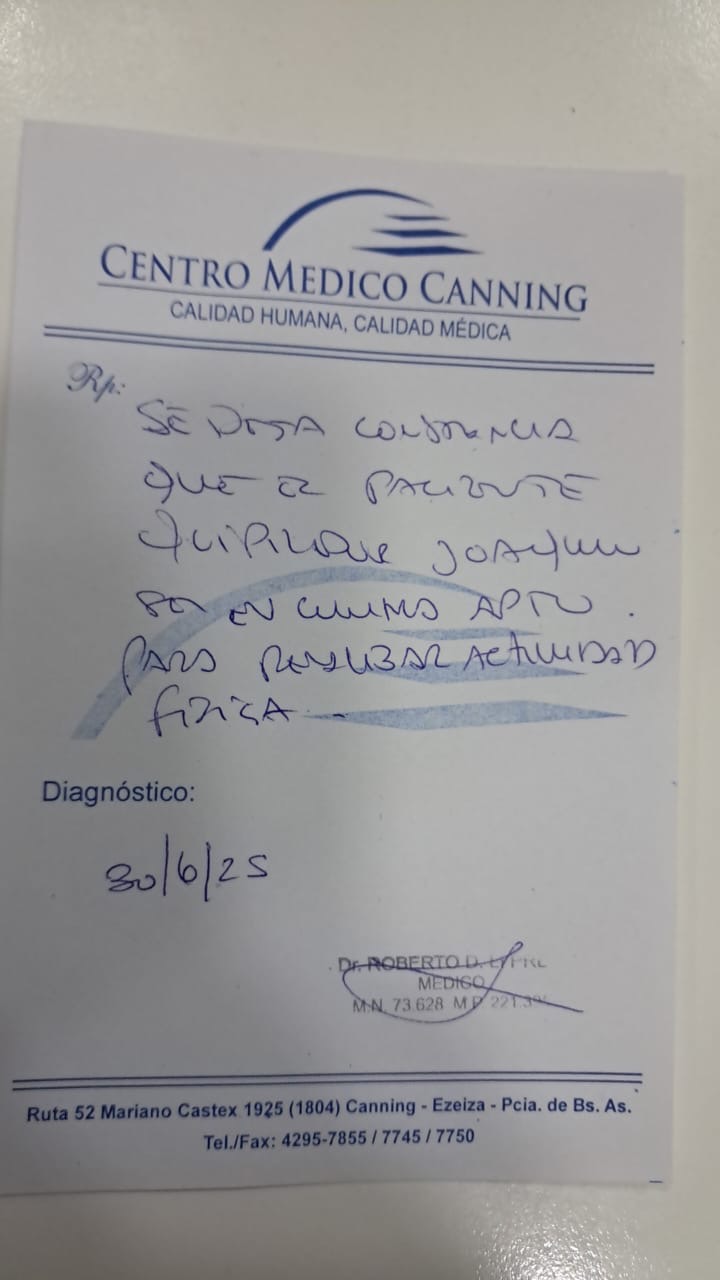 CENTRO MEDICO CANNING
CALIDAD HUMANA, CALIDAD MÉDICA
Rp:
SE DEJA CONSTANCIA
QUE EL PACIENTE
JOAQUIN
APTO.
PARA REALIZAR ACTIVIDAD
FISICA
Diagnóstico:
30/6/25
Dr. ROBERTO D.
MEDICO
M.N. 73.628 M.P.
Ruta 52 Mariano Castex 1925 (1804) Canning - Ezeiza - Pcia. de Bs. As.
Tel./Fax: 4295-7855 / 7745 / 7750